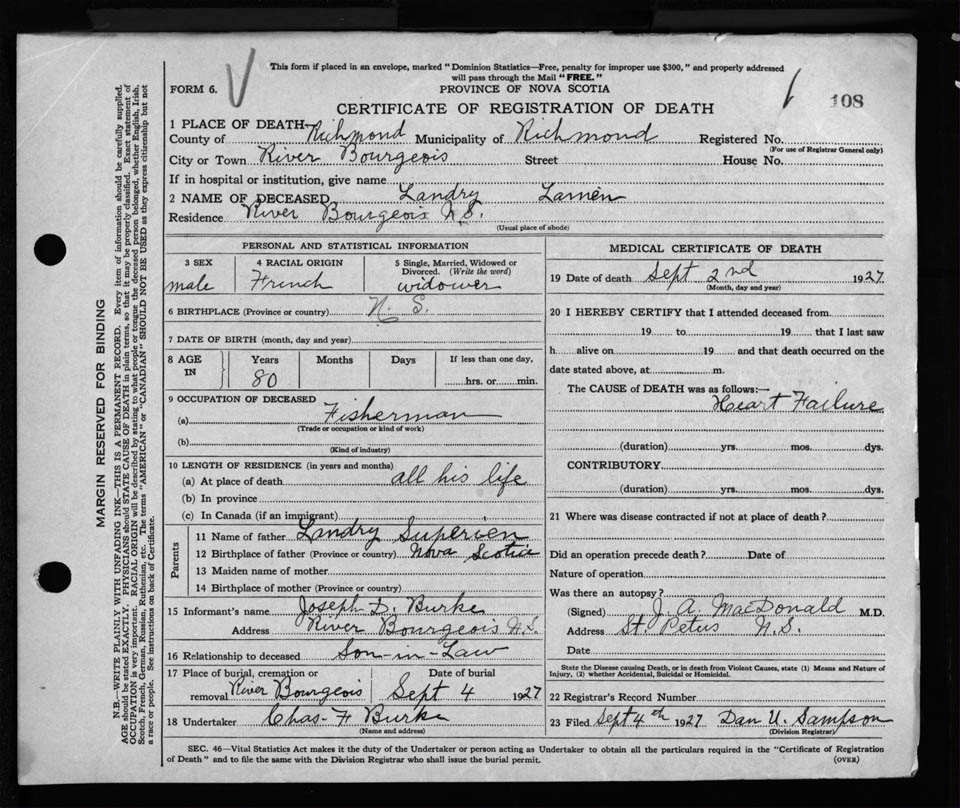 This form if placed in an envelope, marked "Dominion Statistics—Free, penalty for improper use $300," and properly addressed
will pass through the Mail "FREE."
FORM 6.
PROVINCE OF NOVA SCOTIA
CERTIFICATE OF REGISTRATION OF DEATH
108
1 PLACE OF DEATH—
County of Richmond Municipality of Richmond Registered No.
(For use of Registrar General only)
City or Town River Bourgeois Street House No.
If in hospital or institution, give name
2 NAME OF DECEASED Landry Lamèn
Residence River Bourgeois N.S.
(Usual place of abode)
PERSONAL AND STATISTICAL INFORMATION
3 SEX 4 RACIAL ORIGIN 5 Single, Married, Widowed or
Divorced. (Write the word)
male French widower
6 BIRTHPLACE (Province or country) N. S.
7 DATE OF BIRTH (month, day and year)
8 AGE IN Years Months Days If less than one day,
80 hrs. or min.
9 OCCUPATION OF DECEASED
(a) Fisherman
(Trade or occupation or kind of work)
(b)
(Kind of industry)
10 LENGTH OF RESIDENCE (in years and months)
(a) At place of death all his life
(b) In province
(c) In Canada (if an immigrant)
Parents
11 Name of father Landry Supervèn
12 Birthplace of father (Province or country) Nova Scotia
13 Maiden name of mother
14 Birthplace of mother (Province or country)
15 Informant's name Joseph D. Burke
Address River Bourgeois N.S.
16 Relationship to deceased Son-in-Law
17 Place of burial, cremation or Date of burial
removal River Bourgeois Sept 4 1927
18 Undertaker Chas. F Burke
(Name and address)
MEDICAL CERTIFICATE OF DEATH
19 Date of death Sept 2nd 1927
(Month, day and year)
20 I HEREBY CERTIFY that I attended deceased from
19 to 19 that I last saw
h alive on 19 and that death occurred on the
date stated above, at m.
The CAUSE of DEATH was as follows:—
Heart Failure
(duration) yrs. mos. dys.
CONTRIBUTORY
(duration) yrs. mos. dys.
21 Where was disease contracted if not at place of death?
Did an operation precede death? Date of
Nature of operation
Was there an autopsy?
(Signed) J. A. MacDonald M.D.
Address St. Petus N.S.
Date
State the Disease causing Death, or in death from Violent Causes, state (1) Means and Nature of
Injury, (2) whether Accidental, Suicidal or Homicidal.
22 Registrar's Record Number
23 Filed Sept 4th 1927 Dan U. Sampson
(Division Registrar)
SEC. 46—Vital Statistics Act makes it the duty of the Undertaker or person acting as Undertaker to obtain all the particulars required in the "Certificate of Registration
of Death" and to file the same with the Division Registrar who shall issue the burial permit.
(OVER)
MARGIN RESERVED FOR BINDING
N.B.—WRITE PLAINLY WITH UNFADING INK—THIS IS A PERMANENT RECORD. Every item of information should be carefully supplied.
AGE should be stated EXACTLY. PHYSICIANS should STATE CAUSE OF DEATH in plain terms, so that it may be properly classified. Exact statement of
OCCUPATION is very important. RACIAL ORIGIN will be described by stating to what people or tongue the deceased person belonged, whether English, Irish,
Scotch, French, German, Russian, Ruthenian, etc. The terms "AMERICAN" or "CANADIAN" SHOULD NOT BE USED as they express citizenship but not
a race or people. See instructions on back of Certificate.